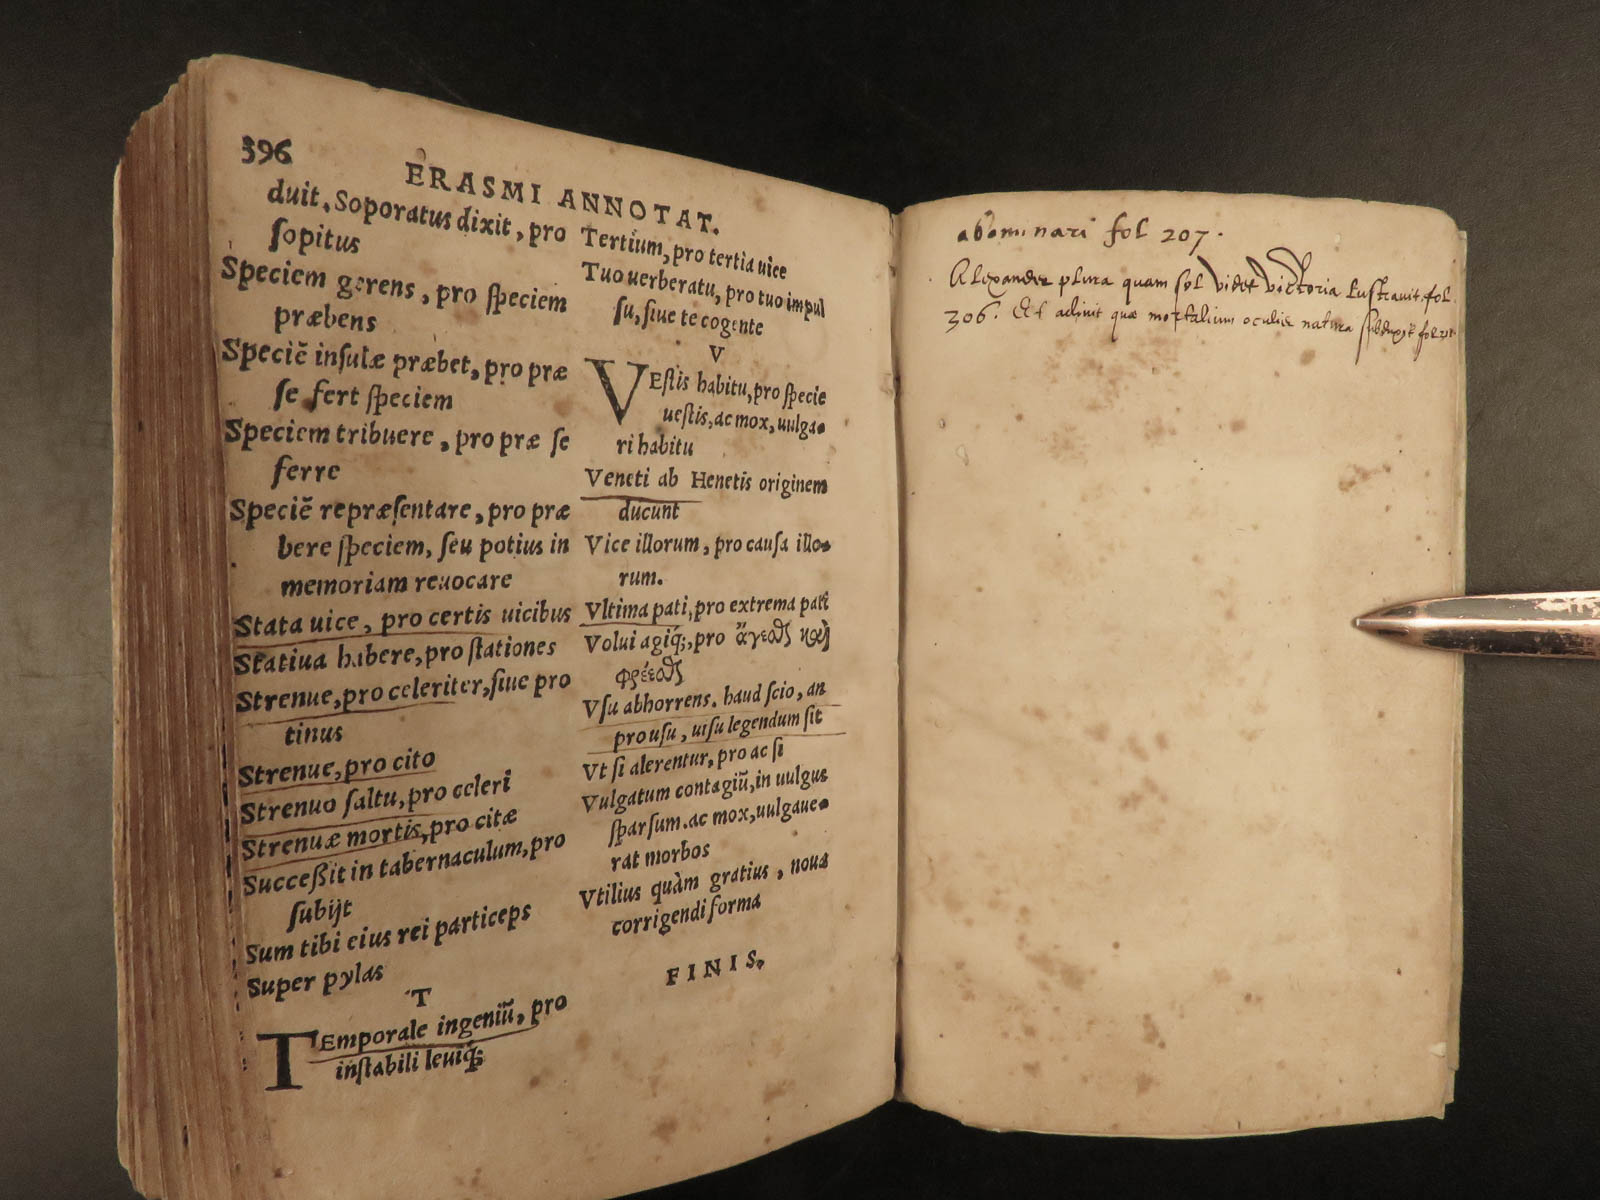 396
ERASMI ANNOTAT.
duit, Soporatus dixit, pro
sopitus
Speciem gerens, pro speciem
præbens
Speciē insulæ præbet, pro præ
se fert speciem
Speciem tribuere, pro præ se
ferre
Speciē repræsentare, pro præ
bere speciem, seu potius in
memoriam reuocare
Stata uice, pro certis uicibus
Statiua habere, pro stationes
Strenue, pro celeriter, siue pro
tinus
Strenue, pro cito
Strenuo saltu, pro celeri
Strenuæ mortis, pro citæ
Successit in tabernaculum, pro
subijt
Sum tibi eius rei particeps
Super pylas
T
TEmporale ingeniū, pro
instabili leuiq́;
Tertium, pro tertia uice
Tuo uerberatu, pro tuo impul
su, siue te cogente
V
VEstis habitu, pro specie
uestis, ac mox, uulga-
ri habitu
Veneti ab Henetis originem
ducunt
Vice illorum, pro causa illo-
rum.
Vltima pati, pro extrema pati
Volui agiq́;, pro ἄγεσθαι καὶ
φέρεσθαι
Vsu abhorrens. haud scio, an
pro usu, uisu legendum sit
Vt si alerentur, pro ac si
Vulgatum contagiū, in uulgus
sparsum. ac mox, uulgaue-
rat morbos
Vtilius quàm gratius, noua
corrigendi forma
FINIS.
abominari fol 207.
Alexander plura quam sol videt victoria lustravit. fol.
306. Et adivit quæ mortalium oculis natura subduxit fol